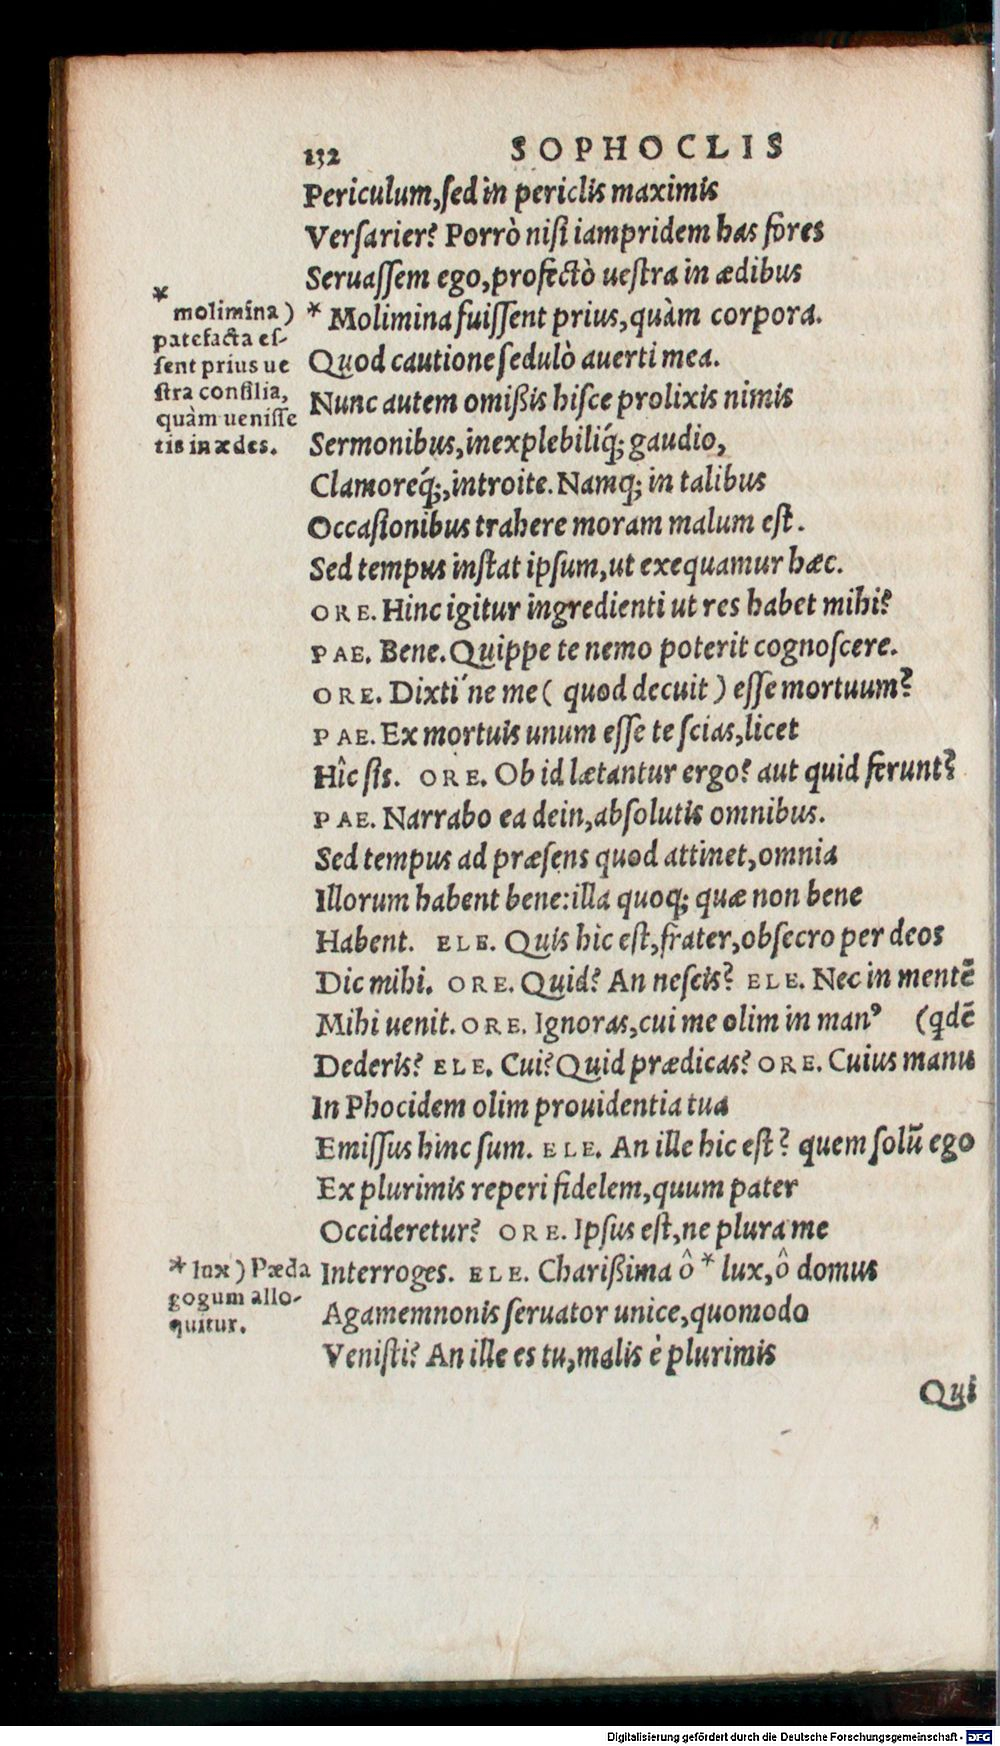 132 SOPHOCLIS
Periculum, ſed in periclis maximis
Verſarier? Porrò niſi iampridem has fores
Seruaſſem ego, profectò ueſtra in ædibus
* Molimina fuiſſent prius, quàm corpora.
Quod cautione ſedulò auerti mea.
Nunc autem omißis hiſce prolixis nimis
Sermonibus, inexplebiliq́; gaudio,
Clamoreq́;, introite. Namq; in talibus
Occaſionibus trahere moram malum eſt.
Sed tempus inſtat ipſum, ut exequamur hæc.
ORE. Hinc igitur ingredienti ut res habet mihi?
PAE. Bene. Quippe te nemo poterit cognoſcere.
ORE. Dixti´ne me ( quod decuit ) eſſe mortuum?
PAE. Ex mortuis unum eſſe te ſcias, licet
Hîc ſis. ORE. Ob id lætantur ergo? aut quid ferunt?
PAE. Narrabo ea dein, abſolutis omnibus.
Sed tempus ad præſens quod attinet, omnia
Illorum habent bene: illa quoq; quæ non bene
Habent. ELE. Quis hic eſt, frater, obſecro per deos
Dic mihi. ORE. Quid? An neſcis? ELE. Nec in mentẽ
Mihi uenit. ORE. Ignoras, cui me olim in manꝰ (qdẽ
Dederis? ELE. Cui? Quid prædicas? ORE. Cuius manu
In Phocidem olim prouidentia tua
Emiſſus hinc ſum. ELE. An ille hic eſt? quem ſolũ ego
Ex plurimis reperi fidelem, quum pater
Occideretur? ORE. Ipſus eſt, ne plura me
Interroges. ELE. Charißima ô * lux, ô domus
Agamemnonis ſeruator unice, quomodo
Veniſti? An ille es tu, malis è plurimis
Qui
*
molimina )
patefacta eſ-
ſent prius ue
ſtra conſilia,
quàm ueniſſe
tis in ædes.
* lux ) Pæda
gogum allo-
quitur.
Digitalisierung gefördert durch die Deutsche Forschungsgemeinschaft - DFG